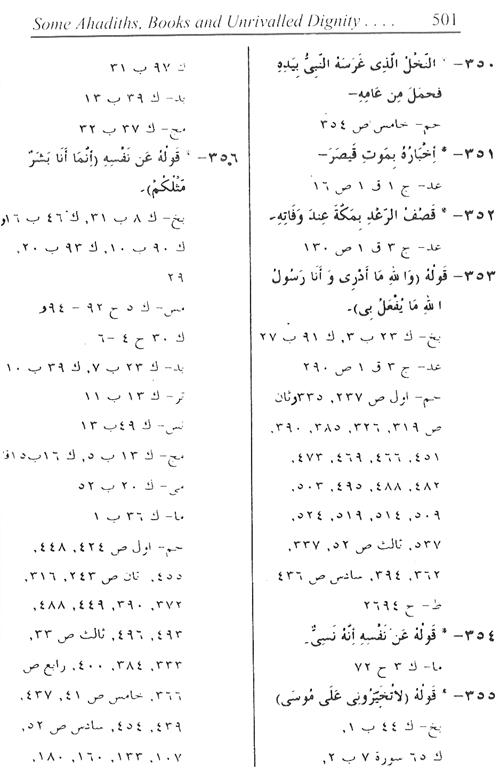 Some Ahadiths, Books and Unrivalled Dignity . . . . 501
٣٥٠- * النَّخْلُ الَّذِى غَرَسَهُ النَّبِىُّ بِيَدِهِ
فَحَمَلَ مِن عَامِهِ-
حم- خامس ص ٣٥٤
٣٥١- * اخْبَارُهُ بِمَوتِ قَيصَرَ-
عد- ج ١ ق ١ ص ١٦
٣٥٢- * قَصْفُ الرَّعْدِ بِمَكَّةَ عِندَ وَفَاتِهِ-
عد- ج ٣ ق ١ ص ١٣٠
٣٥٣- قَولُهُ (وَاللهِ مَا أَدْرِى وَ أَنَا رَسُولُ
اللهِ مَا يُفْعَلُ بِى).
بخ- ك ٢٣ ب ٣, ك ٩١ ب ٢٧
عد- ج ٣ ق ١ ص ٢٩٠
حم- اول ص ٢٣٧, ٣٣٥ وثان
ص ٣١٩, ٣٢٦, ٣٨٥, ٣٩٠,
٤٥١, ٤٦٦, ٤٦٩, ٤٧٣,
٤٨٢, ٤٨٨, ٤٩٥, ٥٠٣,
٥٠٩, ٥١٤, ٥١٩, ٥٢٤,
٥٣٧, ثالث ص ٥٢, ٣٣٧,
٣٦٢, ٣٩٤, سادس ص ٤٣٦
ط- ح ٢٦٩٤
٣٥٤- * قَولُهُ عَن نَفْسِهِ اِنَّهُ نَسِىٌّ.
ما- ك ٣ ح ٧٢
٣٥٥- * قَولُهُ (لَاتُخَيِّرُونِى عَلَى مُوسَى)
بخ- ك ٤٤ ب ١,
ك ٦٥ سورة ٧ ب ٢,
ك ٩٧ ب ٣١
بد- ك ٣٩ ب ١٣
مج- ك ٣٧ ب ٣٢
٣٥٦- * قَولُهُ عَن نَفْسِهِ (اِنَّمَا أَنَا بَشَرٌ
مِّثْلُكُمْ).
بخ- ك ٨ ب ٣١, ك ٤٦ ب ١٦ و
ك ٩٠ ب ١٠, ك ٩٣ ب ٢٠,
٢٩
مس- ك ٥ ح ٩٢ - ٩٤ و
ك ٣٠ ح ٤ -٦
بد- ك ٢٣ ب ٧, ك ٣٩ ب ١٠
تر- ك ١٣ ب ١١
نس- ك ٤٩ ب ١٣
مج- ك ١٣ ب ٥, ك ١٦ ب ١٥
مى- ك ٢٠ ب ٥٢
ما- ك ٣٦ ب ١
حم- اول ص ٤٢٤, ٤٤٨,
٤٥٥, ثان ص ٢٤٣, ٣١٦,
٣٧٢, ٣٩٠, ٤٤٩, ٤٨٨,
٤٩٣, ٤٩٦, ثالث ص ٣٣,
٣٣٣, ٣٨٤, ٤٠٠, رابع ص
٣٦٦, خامس ص ٤١, ٤٣٧,
٤٣٩, ٤٥٤, سادس ص ٥٢,
١٠٧, ١٣٣, ١٦٠, ١٨٠,